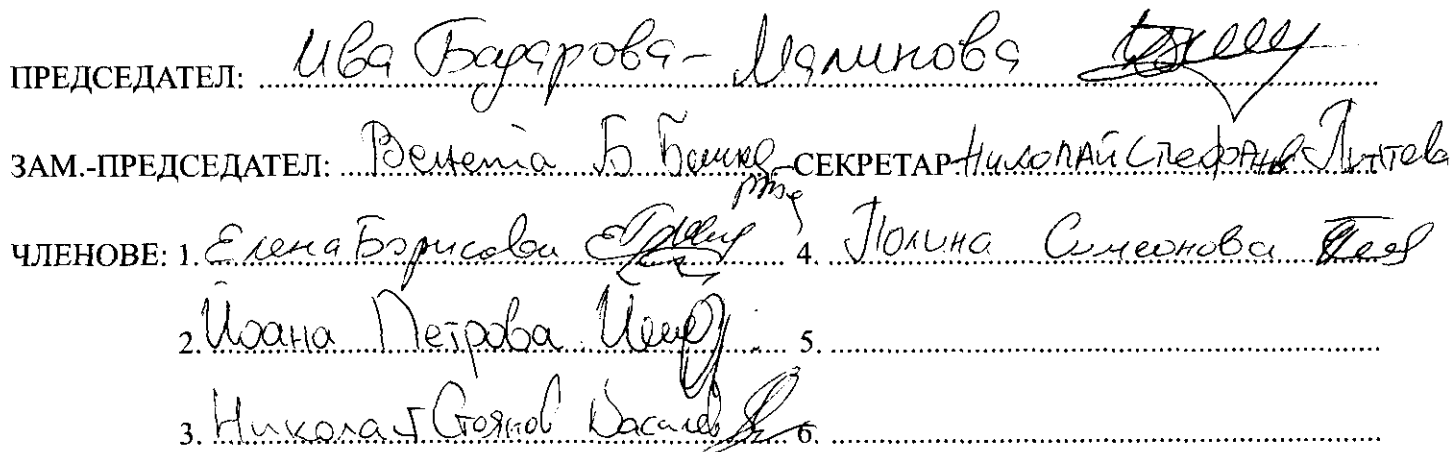 ПРЕДСЕДАТЕЛ: Ива Бадарова - Малинова
ЗАМ.-ПРЕДСЕДАТЕЛ: Венета Б СЕКРЕТАР Николай Стефанов
ЧЛЕНОВЕ: 1. Елена Борисова 4. Полина Симеонова
2. Йоана Петрова 5.
3. Николай Стоянов Василев 6.